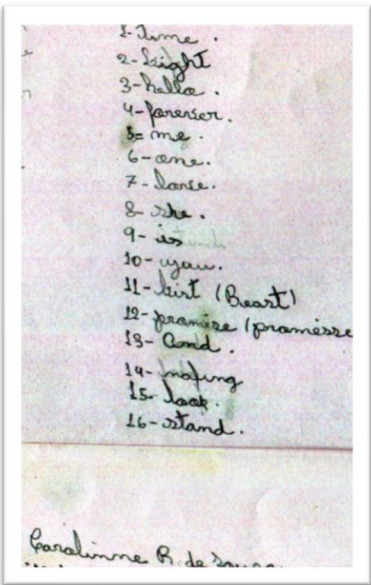 1- time.
2- hight
3- hello.
4- forever.
5= me.
6- one.
7- love.
8- she.
9- is
10- you.
11- bist (Beast)
12- promise (promesse
13- And.
14- nofing
15- look.
16- stand.
Carolinne R. de Souza